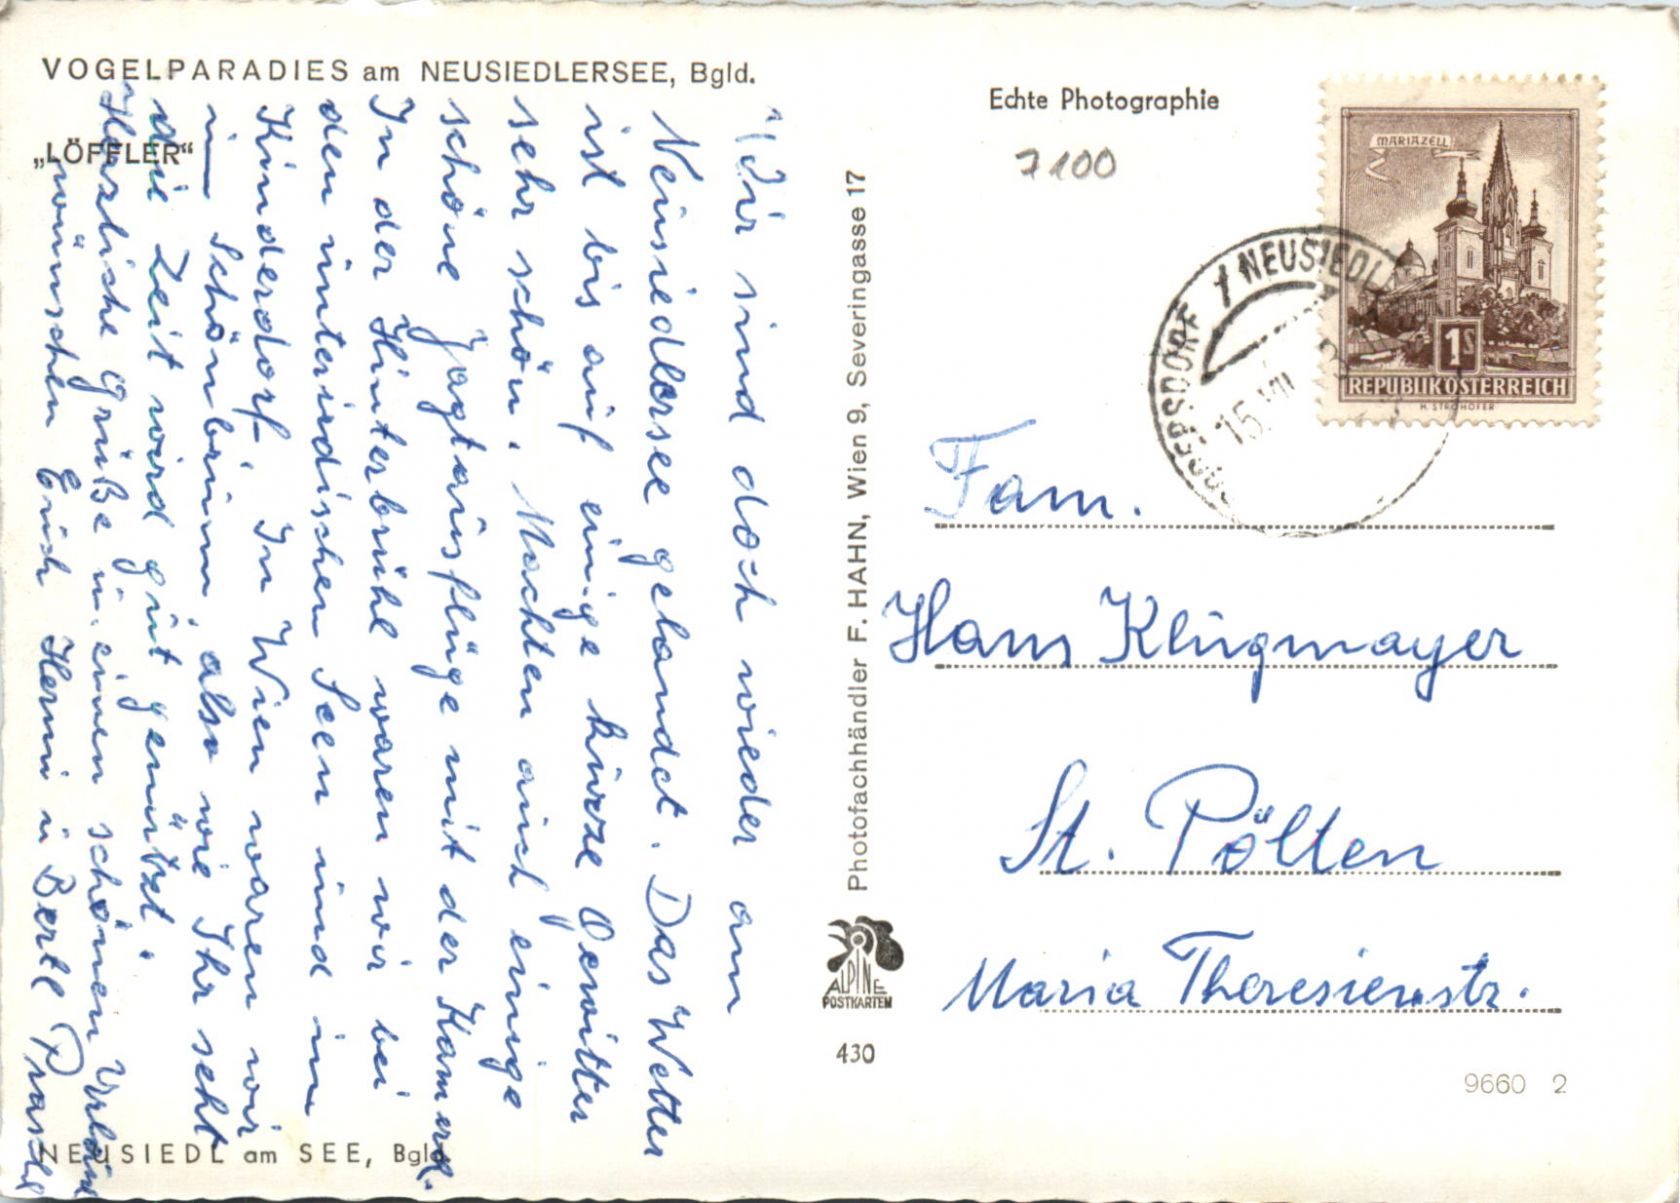 VOGELPARADIES am NEUSIEDLERSEE, Bgld.
„LÖFFLER“
Wir sind doch wieder am
Neusiedlersee gelandet. Das Wetter
ist bis auf einige kurze Gewitter
sehr schön. Machten auch einige
schöne Jagtausflüge mit der Kamera.
In der Hinterbrühl waren wir bei
den unterirdischen Seen und im
Kinderdorf. In Wien waren wir
in Schönbrunn, also wie Ihr seht
die Zeit wird gut genützt.
Herzliche Grüße u. einen schönen Urlaub
wünschen Euch Hermi u Bertl
NEUSIEDL am SEE, Bgld.
Photofachhändler F. HAHN, Wien 9, Severingasse 17
ALPINE
POSTKARTEN
430
Echte Photographie
7100
MARIAZELL
1S
REPUBLIK ÖSTERREICH
H. STROHOFER
NEUSIEDL
15. VII
Fam.
Hans Klugmayer
St. Pölten
Maria Theresienstr.
9660 2